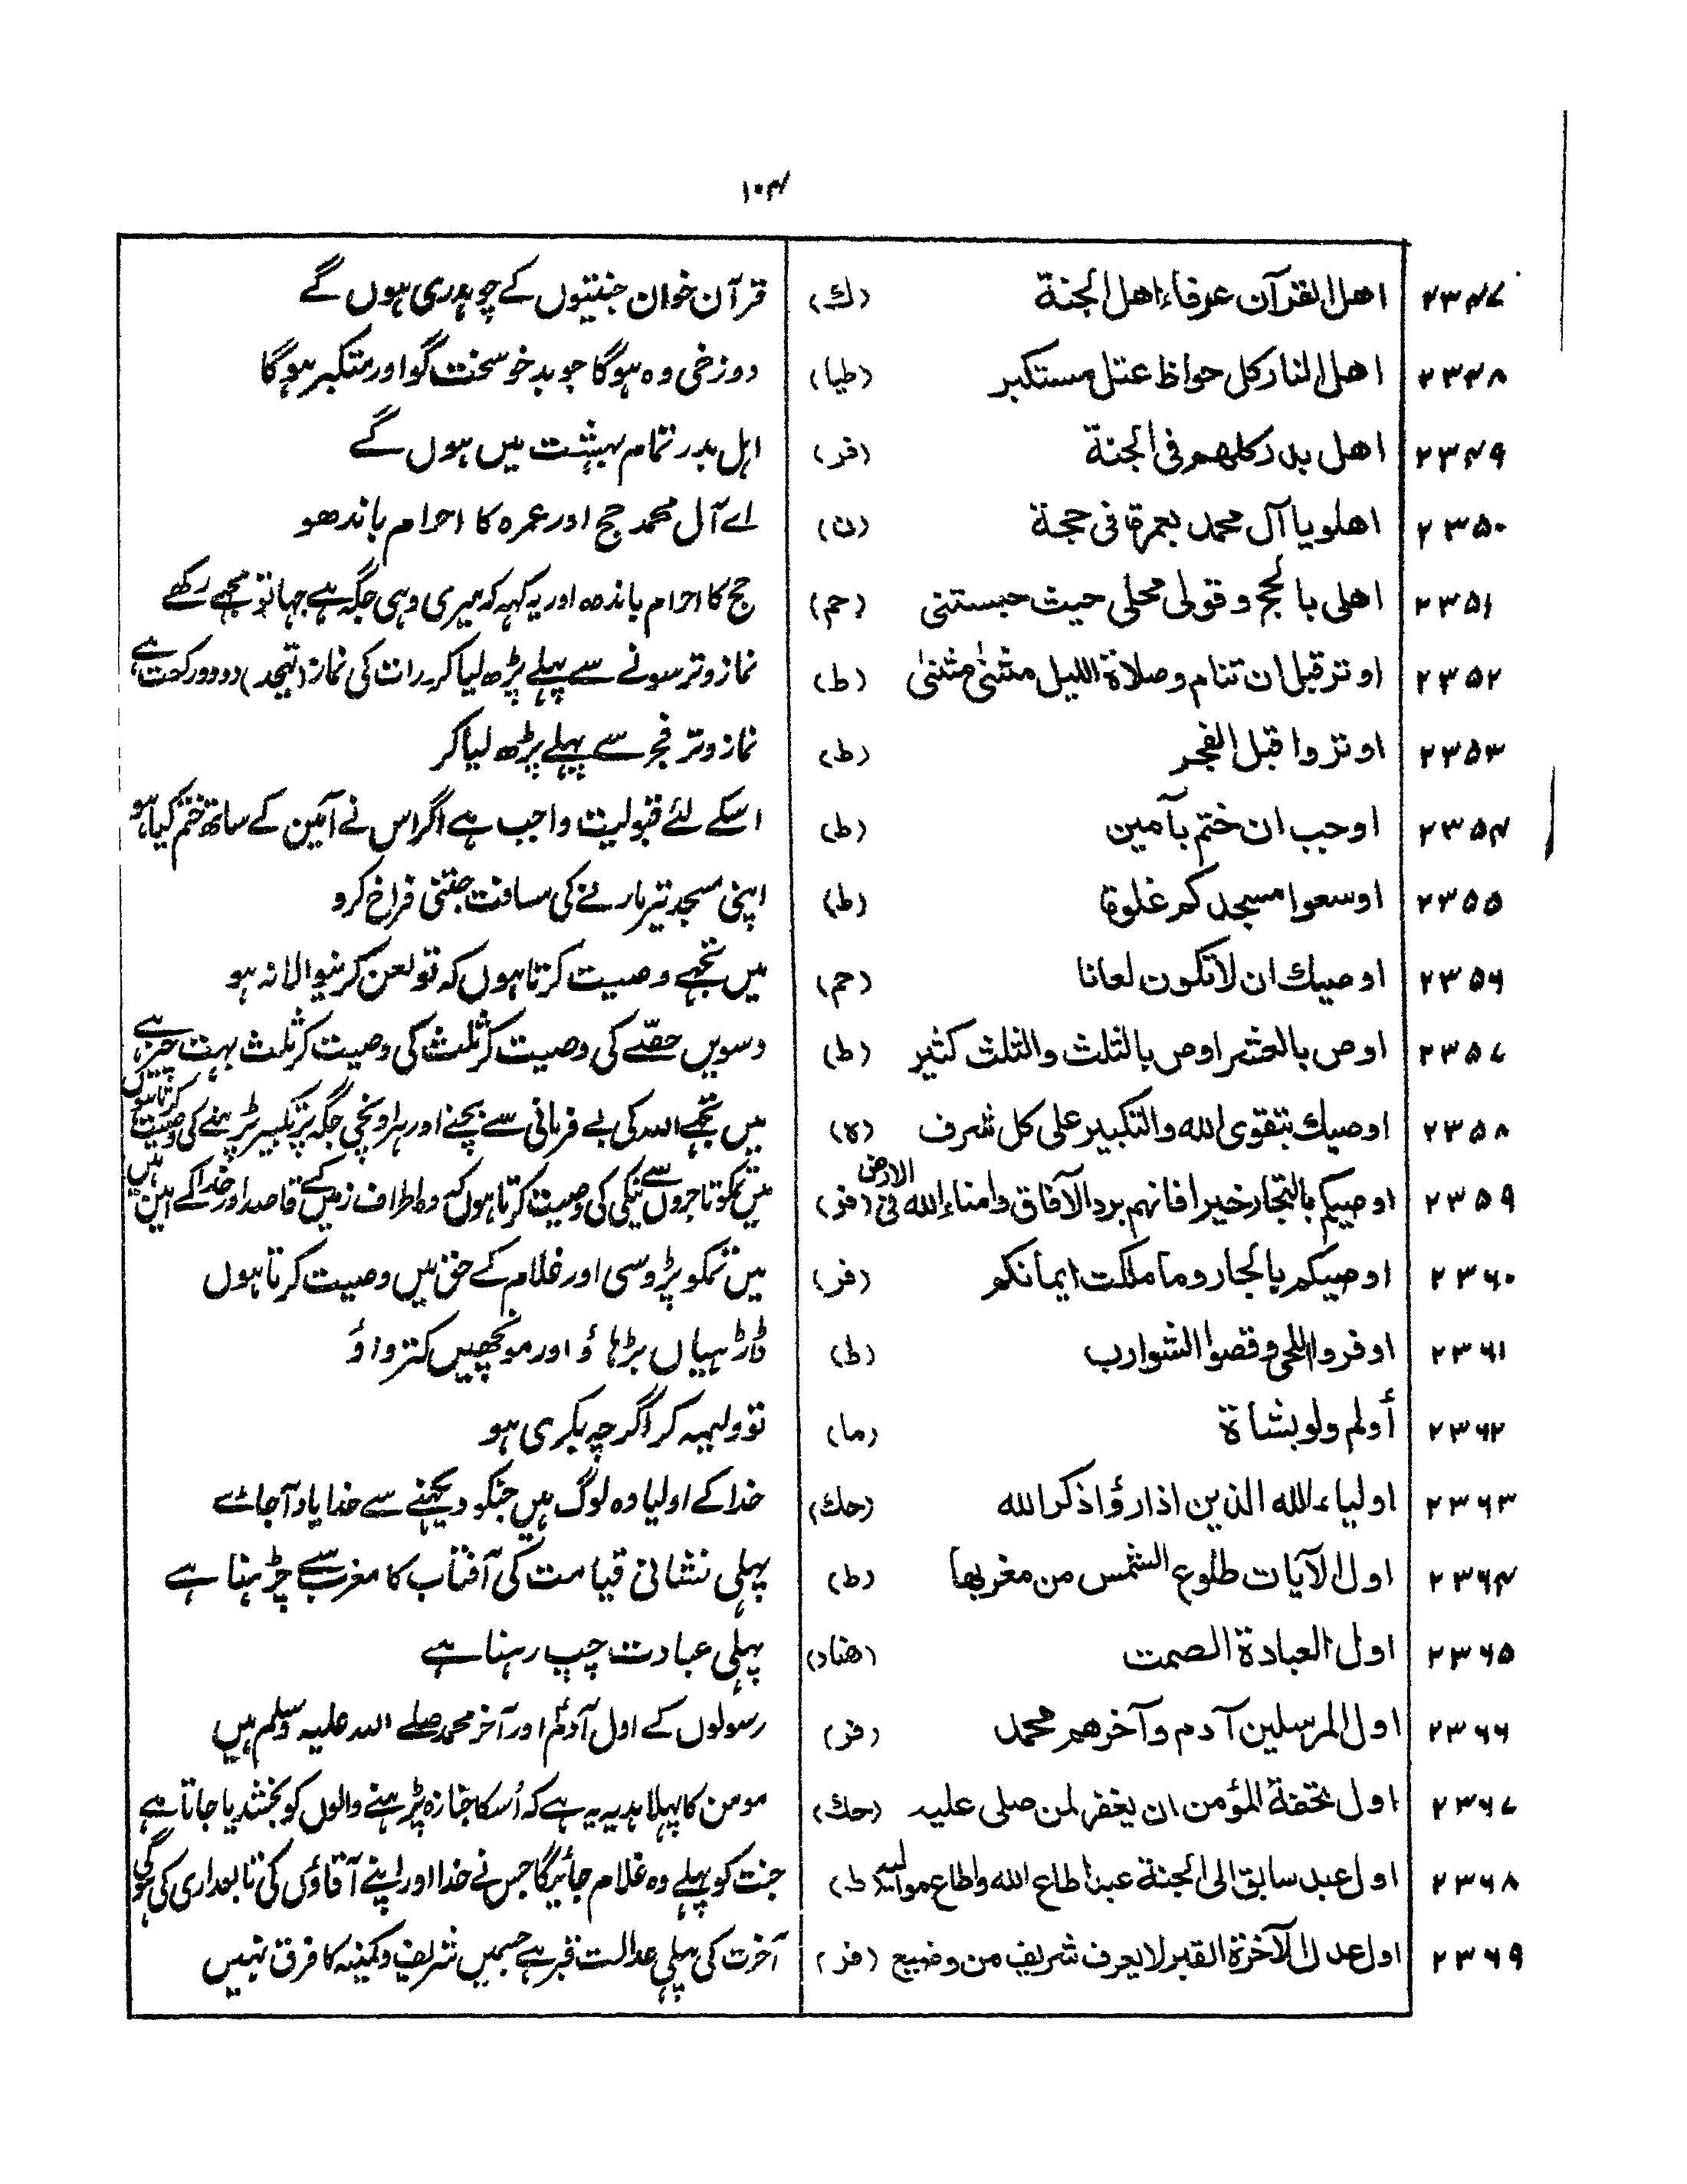 ۱۰۴
۲۳۴۷ اهل القرآن عرفاء اهل الجنة (ك) قرآن خوان جنتیوں کے چوہدری ہوں گے
۲۳۴۸ اهل النار كل جواظ عتل مستكبر (طيا) دوزخی وہ ہوگا جو بدخو سخت گو اور متکبر ہوگا
۲۳۴۹ اهل بدر كلهم فى الجنة (فر) اہل بدر تمام بہشت میں ہوں گے
۲۳۵۰ اهلوا يا آل محمد بعمرة فى حجة (ن) اے آل محمد حج اور عمرہ کا احرام باندھو
۲۳۵۱ اهلى بالحج وقولى محلى حيث حبستنى (حم) حج کا احرام باندہ اور یہ کہہ کہ میری وہی جگہ ہے جہا تو مجھے رکھے
۲۳۵۲ اوتر قبل ان تنام وصلاة الليل مثنىٰ مثنىٰ (ط) نماز وتر سونے سے پہلے پڑھ لیا کر رات کی نماز (تہجد) دو دو رکعت ہے
۲۳۵۳ اوتروا قبل الفجر (ط) نماز وتر فجر سے پہلے پڑھ لیا کر
۲۳۵۴ اوجب ان ختم بآمين (ط) اسکے لئے قبولیت واجب ہے اگر اس نے آمین کے ساتھ ختم کیا ہو
۲۳۵۵ اوسعوا مسجدكم غلوة (ط) اپنی مسجد تیر مارنے کی مسافت جتنی فراخ کرو
۲۳۵۶ اوصيك ان لا تكون لعانا (حم) میں تجھے وصیت کرتا ہوں کہ تو لعن کرنیوالا نہ ہو
۲۳۵۷ اوص بالعشر اوص بالثلث والثلث كثير (ط) دسویں حصّے کی وصیت کر ثلث کی وصیت کر ثلث بہت چیز ہے
۲۳۵۸ اوصيك بتقوى الله والتكبير على كل شرف (ه) میں تجھے اللہ کی بے فرمانی سے بچنے اور ہر اونچی جگہ پر تکبیر پڑہنے کی وصیت کرتا ہوں
۲۳۵۹ اوصيكم بالتجار خيرا فانهم برد الآفاق وامناء الله فى الارض (فر) میں تمکو تاجروں سے نیکی کی وصیت کرتا ہوں کہ وہ اطراف زمین کے قاصد اور خدا کے امین ہیں
۲۳۶۰ اوصيكم بالجار وما ملكت ايمانكم (فر) میں تمکو پڑوسی اور غلام کے حق میں وصیت کرتا ہوں
۲۳۶۱ اوفروا اللحى وقصوا الشوارب (ط) ڈاڑہیاں بڑہاؤ اور مونچھیں کترواؤ
۲۳۶۲ أولم ولو بشاة (ما) تو ولیمہ کر اگرچہ بکری ہو
۲۳۶۳ اولياء الله الذين اذا رؤا ذكر الله (حك) خدا کے اولیا وہ لوگ ہیں جنکو دیکہنے سے خدا یاد آجائے
۲۳۶۴ اول الآيات طلوع الشمس من مغربها (ط) پہلی نشانی قیامت کی آفتاب کا مغرب سے چڑہنا ہے
۲۳۶۵ اول العبادة الصمت (هناد) پہلی عبادت چپ رہنا ہے
۲۳۶۶ اول المرسلين آدم وآخرهم محمد (فر) رسولوں کے اول آدمؑ اور آخر محمد صلے اللہ علیہ وسلم ہیں
۲۳۶۷ اول تحفة المؤمن ان يغفر لمن صلى عليه (حك) مومن کا پہلا ہدیہ یہ ہے کہ اُسکا جنازہ پڑہنے والوں کو بخشدیا جاتا ہے
۲۳۶۸ اول عبد سابق الى الجنة عبد اطاع الله واطاع مواليه (ط) جنت کو پہلے وہ غلام جائیگا جس نے خدا اور اپنے آقاؤں کی تابعداری کی ہوگی
۲۳۶۹ اول عدل الآخرة القبر لا يعرف شريف من وضيع (فر) آخرت کی پہلی عدالت قبر ہے جسمیں شریف و کمینہ کا فرق نہیں